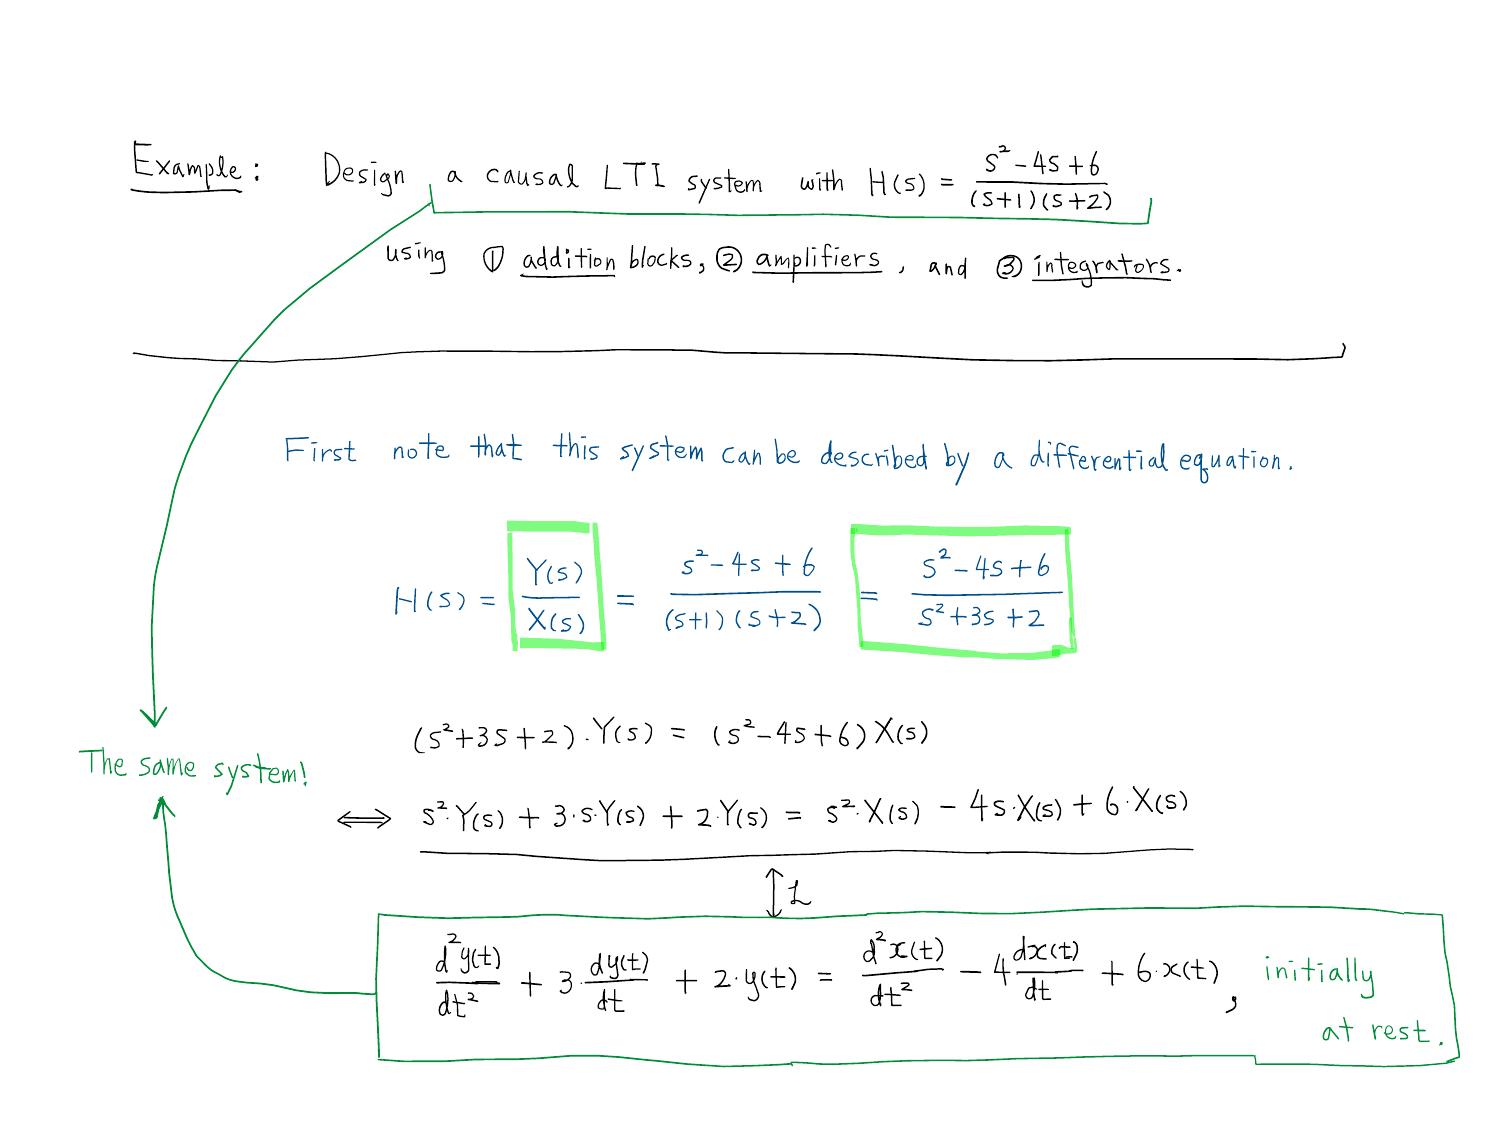 Example: Design a causal LTI system with H(s) = (s² - 4s + 6) / ((s+1)(s+2))
using ① addition blocks, ② amplifiers, and ③ integrators.
First note that this system can be described by a differential equation.
H(s) = Y(s)/X(s) = (s² - 4s + 6) / ((s+1)(s+2)) = (s² - 4s + 6) / (s² + 3s + 2)
(s² + 3s + 2) · Y(s) = (s² - 4s + 6) X(s)
The same system!
⟺ s²·Y(s) + 3·s·Y(s) + 2·Y(s) = s²·X(s) - 4s·X(s) + 6·X(s)
↕ L
d²y(t)/dt² + 3·dy(t)/dt + 2·y(t) = d²x(t)/dt² - 4 dx(t)/dt + 6·x(t), initially
at rest.